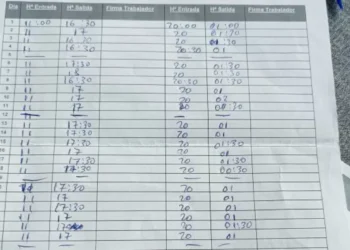 Día Hª Entrada Hª Salida Firma Trabajador Hª Entrada Hª Salida Firma Trabajador
1 11:00 16:30 20:00 01:00
2 11 17 20 01:30
3 11 16:30 20 01:30
4 11 16:30 20:30 01
5
6 11 17:30 20 01:30
7 11 18 20 01:30
8 11 16:30 20:30 01:30
9 11 17 20 01
10 11 17 20
11 11 17 20 00:30
12
13 11 17:30 20 01
11 17:30 20 01
11 17:30 20 01:30
11 17 20 01
11 17:30 20 01:30
11 17:30 20 00:30

17:30 20 01
11 17 20 01
11 17:30 20 01
11 17 20 01
11 17 20 01:30
11 17 20 01